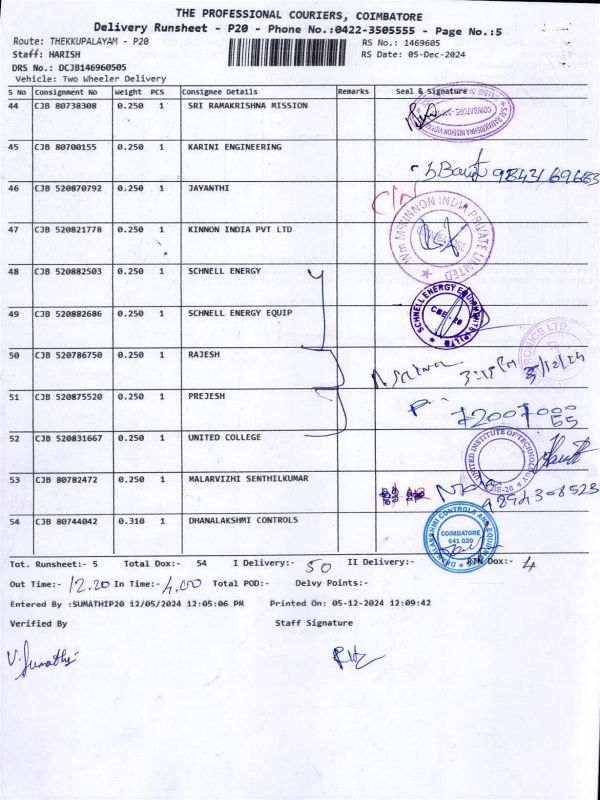 THE PROFESSIONAL COURIERS, COIMBATORE
Delivery Runsheet - P20 - Phone No.:0422-3505555 - Page No.:5
Route: THEKKUPALAYAM - P20 RS No.: 1469605
Staff: HARISH RS Date: 05-Dec-2024
DRS No.: DCJB146960505
Vehicle: Two Wheeler Delivery
S No Consignment No Weight PCS Consignee Details Remarks Seal & Signature
44 CJB 80738308 0.250 1 SRI RAMAKRISHNA MISSION
45 CJB 80700155 0.250 1 KARINI ENGINEERING
9843169683
46 CJB 520870792 0.250 1 JAYANTHI
C/N
47 CJB 520821778 0.250 1 KINNON INDIA PVT LTD
Wm McKINNON INDIA PRIVATE LIMITED
48 CJB 520882503 0.250 1 SCHNELL ENERGY
49 CJB 520882686 0.250 1 SCHNELL ENERGY EQUIP
SCHNELL ENERGY EQUIPMENTS (P) LTD
CBE-20
50 CJB 520786750 0.250 1 RAJESH
51 CJB 520875520 0.250 1 PREJESH
52 CJB 520831667 0.250 1 UNITED COLLEGE
UNITED INSTITUTE OF TECHNOLOGY
53 CJB 80782472 0.250 1 MALARVIZHI SENTHILKUMAR
54 CJB 80744042 0.310 1 DHANALAKSHMI CONTROLS
COIMBATORE
641 020
Tot. Runsheet:- 5 Total Dox:- 54 I Delivery:- 50 II Delivery:- RTN Dox:- 4
Out Time:- 12.20 In Time:- 4.00 Total POD:- Delvy Points:-
Entered By :SUMATHIP20 12/05/2024 12:05:06 PM Printed On: 05-12-2024 12:09:42
Verified By Staff Signature
V. Sumathi